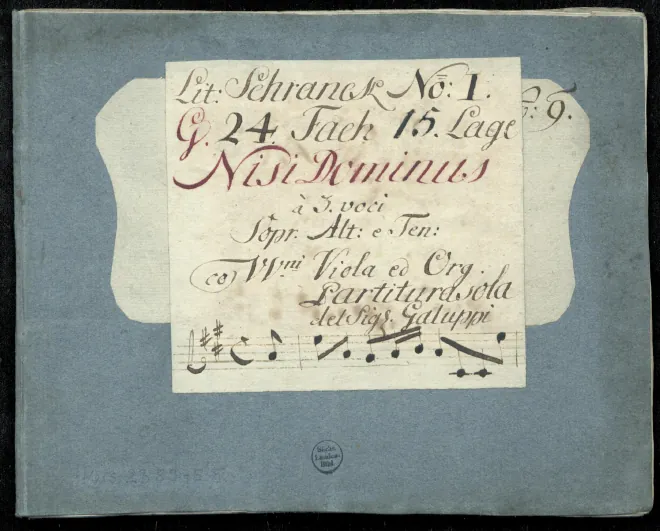 Lit: Schranck No: 1.
G. 24. Fach 15. Lage
: 9.
Nisi Dominus
à 3. voci
Sopr. Alt: e Ten:
co VVni Viola ed Org.
Partitura sola
del Sigr. Galuppi